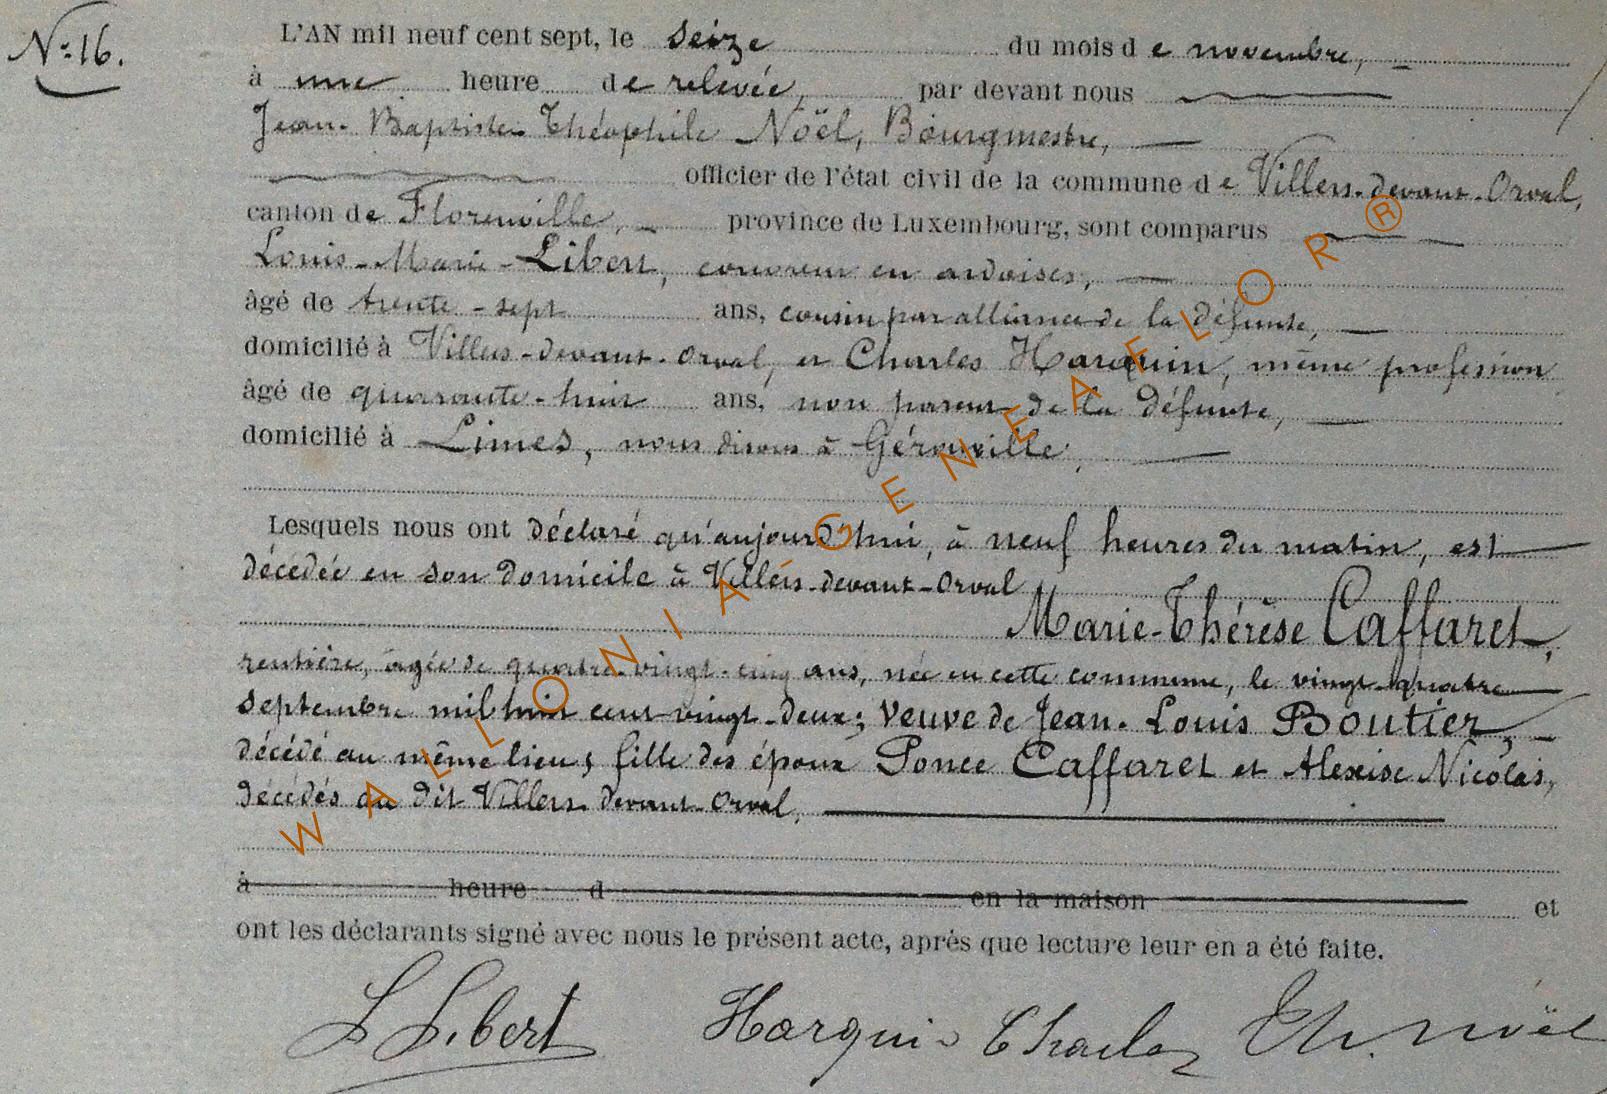 N° 16.
L'AN mil neuf cent sept, le seize du mois de novembre,
à une heure de relevée, par devant nous
Jean-Baptiste Théophile Noël, Bourgmestre,
officier de l'état civil de la commune de Villers-devant-Orval,
canton de Florenville, province de Luxembourg, sont comparus
Louis-Marie-Libert, couvreur en ardoises,
âgé de trente-sept ans, cousin par alliance de la défunte,
domicilié à Villers-devant-Orval, et Charles Harquin, même profession
âgé de quarante-huit ans, non parent de la défunte,
domicilié à Limes, nous disons à Gérouville,
Lesquels nous ont déclaré qu'aujourd'hui, à neuf heures du matin, est
décédée en son domicile à Villers-devant-Orval
Marie-Thérèse Caffaret,
rentière, âgée de quatre-vingt-cinq ans, née en cette commune, le vingt-quatre
septembre mil huit cent vingt-deux; veuve de Jean-Louis Boutier,
décédé au même lieu; fille des époux Ponce Caffaret et Alexise Nicolas,
décédés au dit Villers-devant-Orval,
à heure d en la maison et
ont les déclarants signé avec nous le présent acte, après que lecture leur en a été faite.
L Libert Harquin Charles Th. Noël
WALLONIA GENEAFLOR®